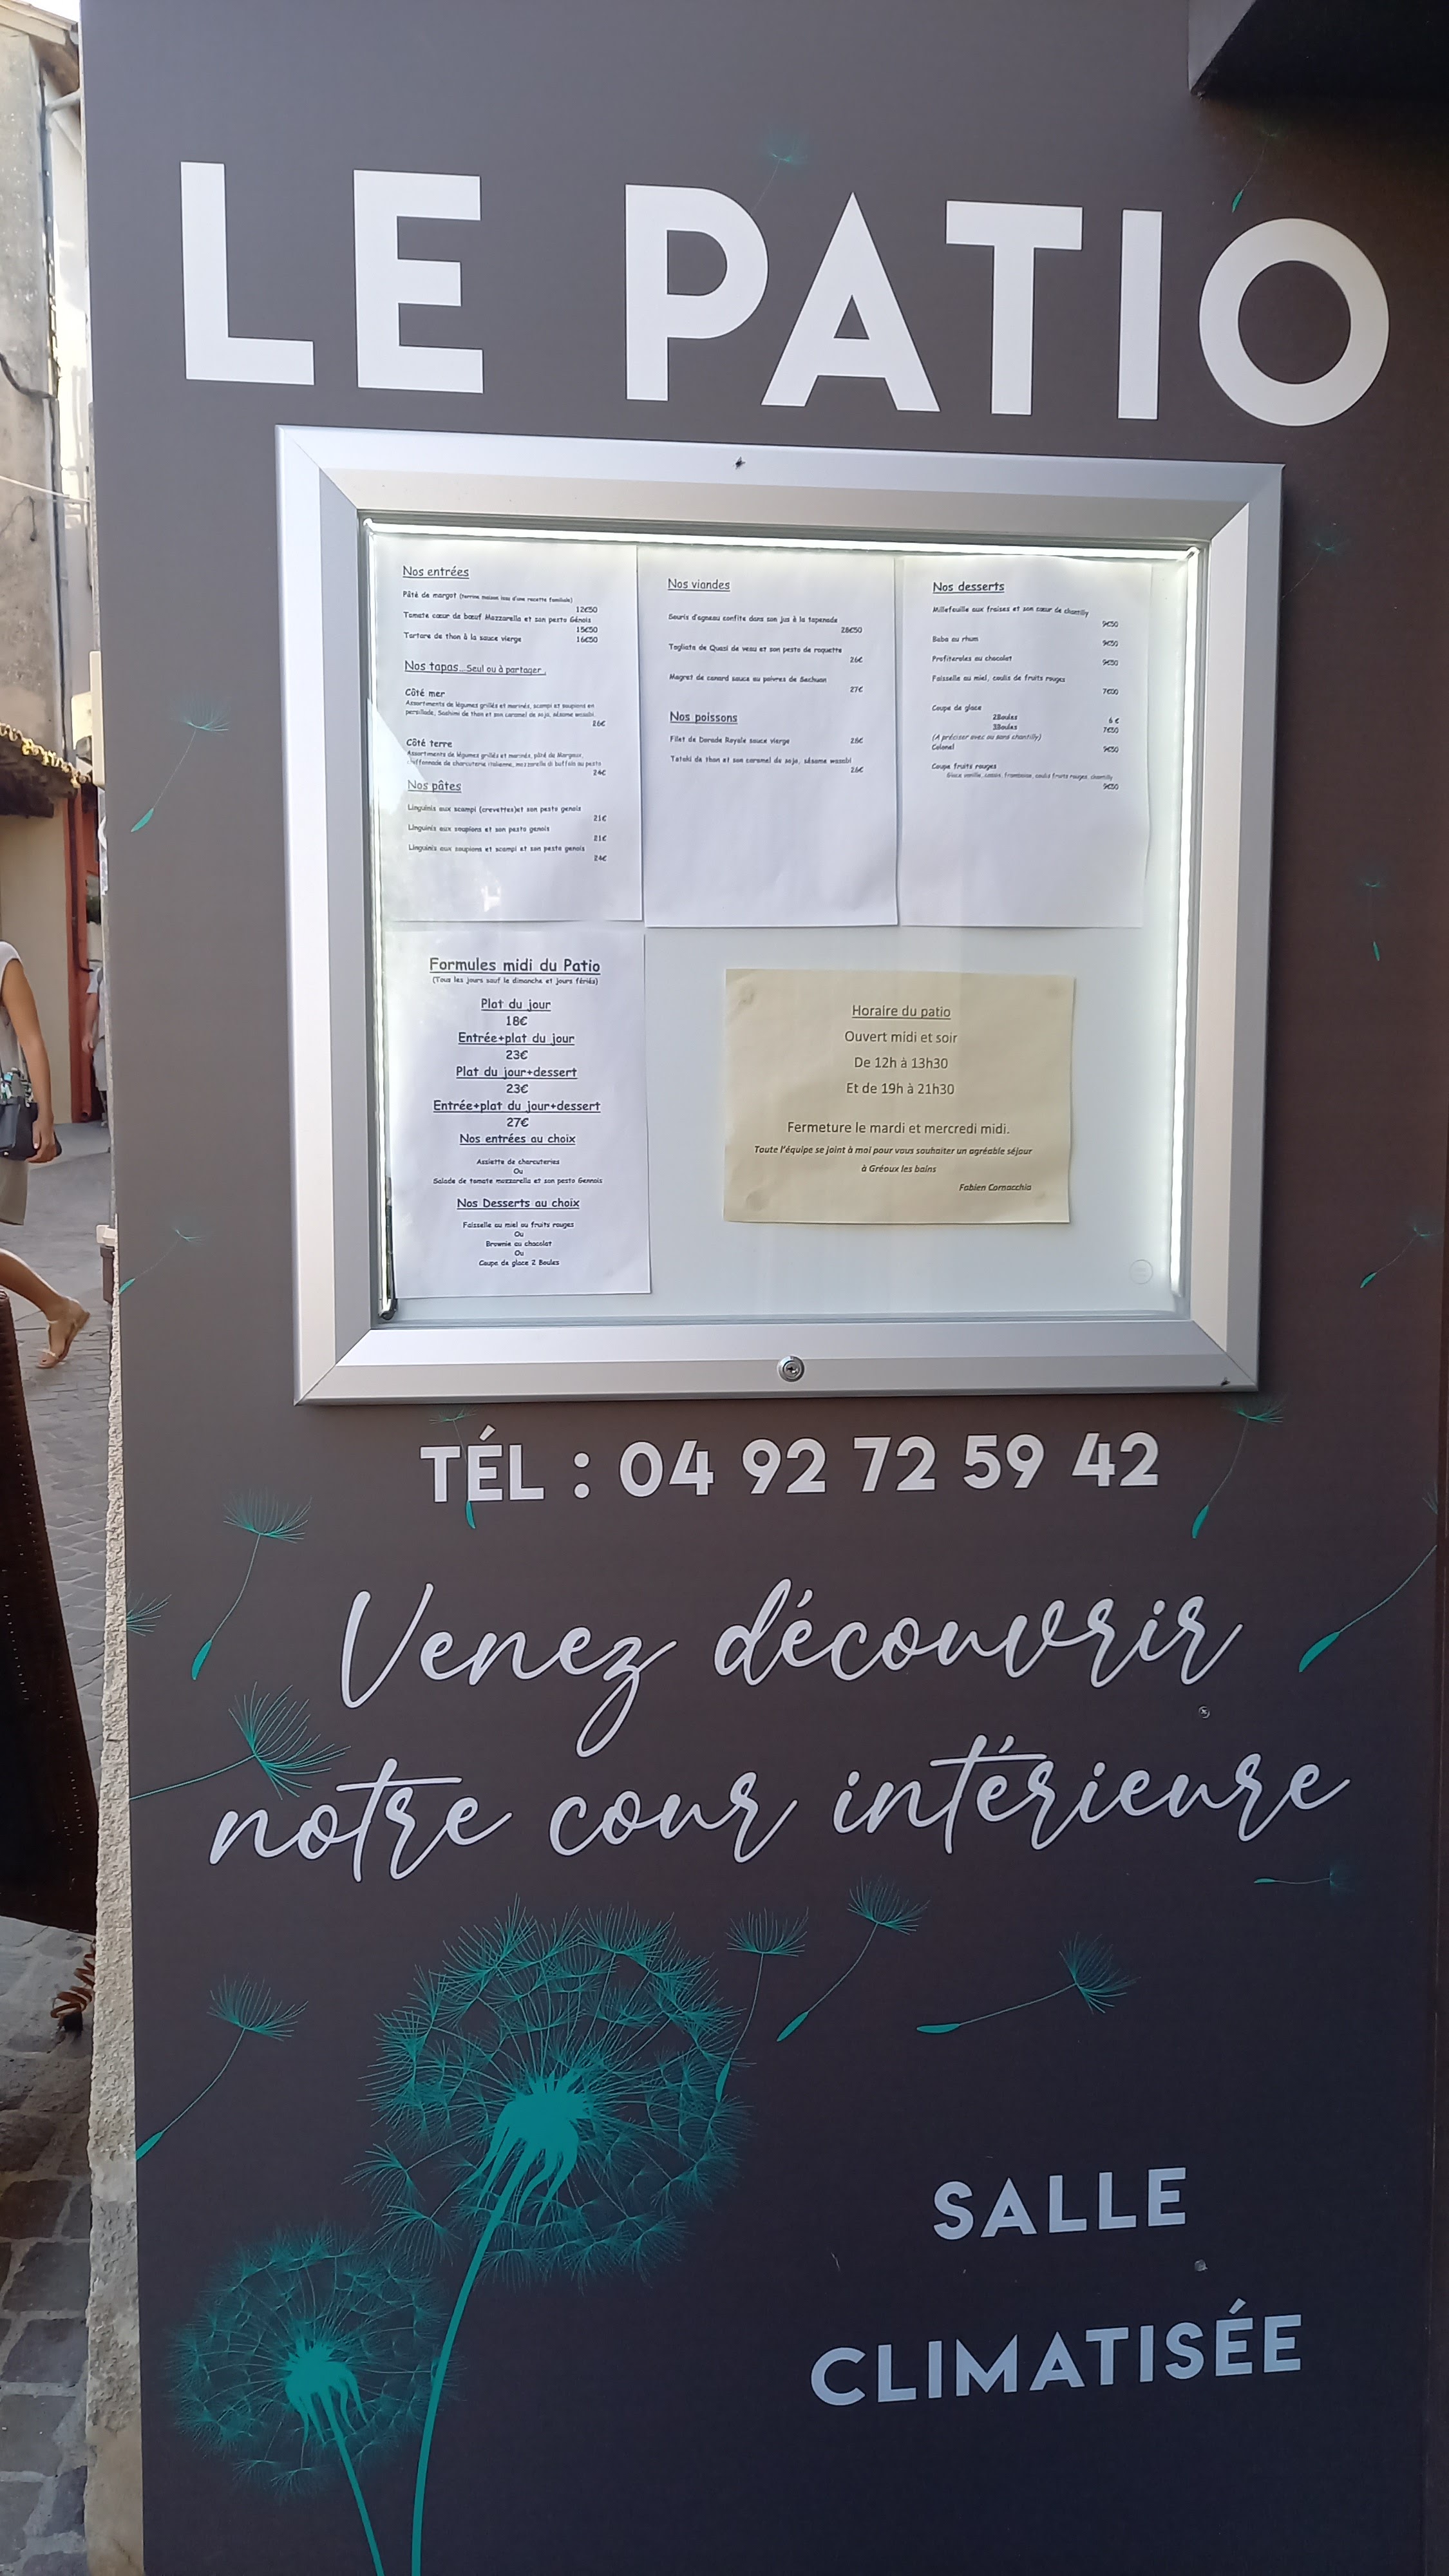 LE PATIO
Nos entrées
Pâté de margot (terrine maison issu d'une recette familiale)
12€50
Tomate cœur de bœuf Mozzarella et son pesto Génois
15€50
Tartare de thon à la sauce vierge 16€50
Nos tapas...Seul ou à partager.
Côté mer
Assortiments de légumes grillés et marinés, scampi et soupions en
persillade, Sashimi de thon et son caramel de soja, sésame wasabi
26€
Côté terre
Assortiments de légumes grillés et marinés, pâté de Margaux,
chiffonnade de charcuterie italienne, mozzarella di buffala au pesto
24€
Nos pâtes
Linguinis aux scampi (crevettes)et son pesto genois
21€
Linguinis aux soupions et son pesto genois
21€
Linguinis aux soupions et scampi et son pesto genois
24€
Nos viandes
Souris d'agneau confite dans son jus à la tapenade
28€50
Tagliata de Quasi de veau et son pesto de roquette
26€
Magret de canard sauce au poivre de Sechuan
27€
Nos poissons
Filet de Dorade Royale sauce vierge 28€
Tataki de thon et son caramel de soja, sésame wasabi
26€
Nos desserts
Millefeuille aux fraises et son cœur de chantilly
9€50
Baba au rhum 9€50
Profiteroles au chocolat 9€50
Faisselle au miel, coulis de fruits rouges
7€00
Coupe de glace
2Boules 6 €
3Boules 7€50
(A préciser avec ou sans chantilly)
Colonel 9€50
Coupe fruits rouges
Glace vanille, cassis, framboise, coulis fruits rouges, chantilly
9€50
Formules midi du Patio
(Tous les jours sauf le dimanche et jours fériés)
Plat du jour
18€
Entrée+plat du jour
23€
Plat du jour+dessert
23€
Entrée+plat du jour+dessert
27€
Nos entrées au choix
Assiette de charcuteries
Ou
Salade de tomate mozzarella et son pesto Gennois
Nos Desserts au choix
Faisselle au miel ou fruits rouges
Ou
Brownie au chocolat
Ou
Coupe de glace 2 Boules
Horaire du patio
Ouvert midi et soir
De 12h à 13h30
Et de 19h à 21h30
Fermeture le mardi et mercredi midi.
Toute l'équipe se joint à moi pour vous souhaiter un agréable séjour
à Gréoux les bains
Fabien Cornacchia
TÉL : 04 92 72 59 42
Venez découvrir
notre cour intérieure
SALLE
CLIMATISÉE